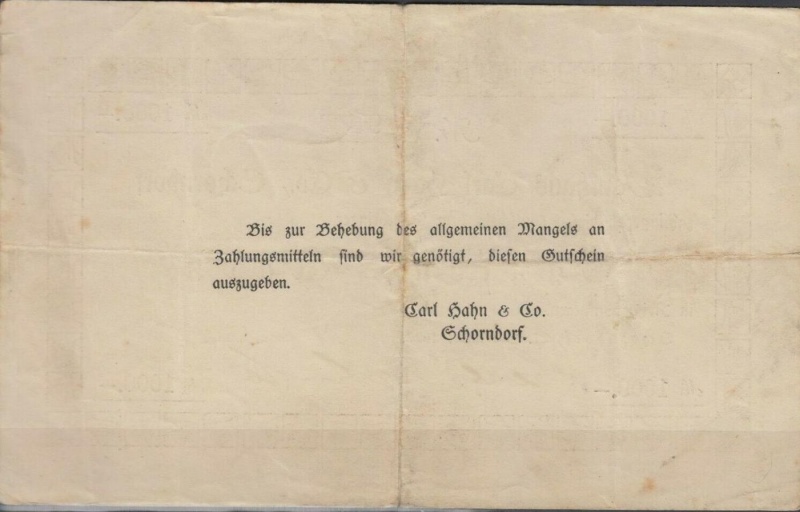 Bis zur Behebung des allgemeinen Mangels an
Zahlungsmitteln sind wir genötigt, diesen Gutschein
auszugeben.
Carl Hahn & Co.
Schorndorf.